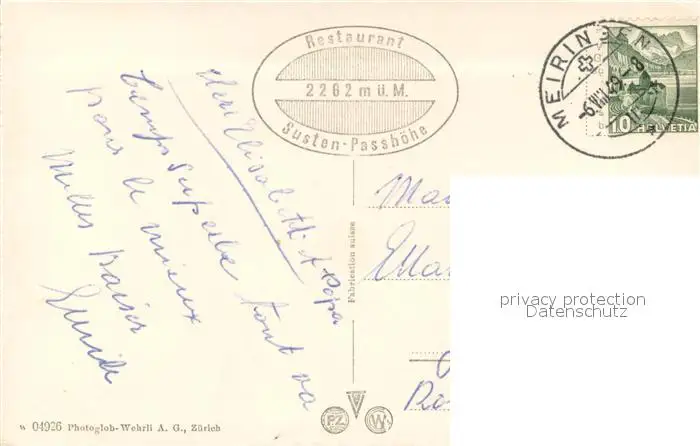 Restaurant
2262 m ü. M.
Susten-Passhöhe
MEIRINGEN
-6.VIII.49-8
10 HELVETIA
Elisabeth et Papa
temps superbe tout va
pour le mieux
Milles baiser
Fabrication suisse
privacy protection
Datenschutz
PZ
W
W 04926 Photoglob-Wehrli A. G., Zürich